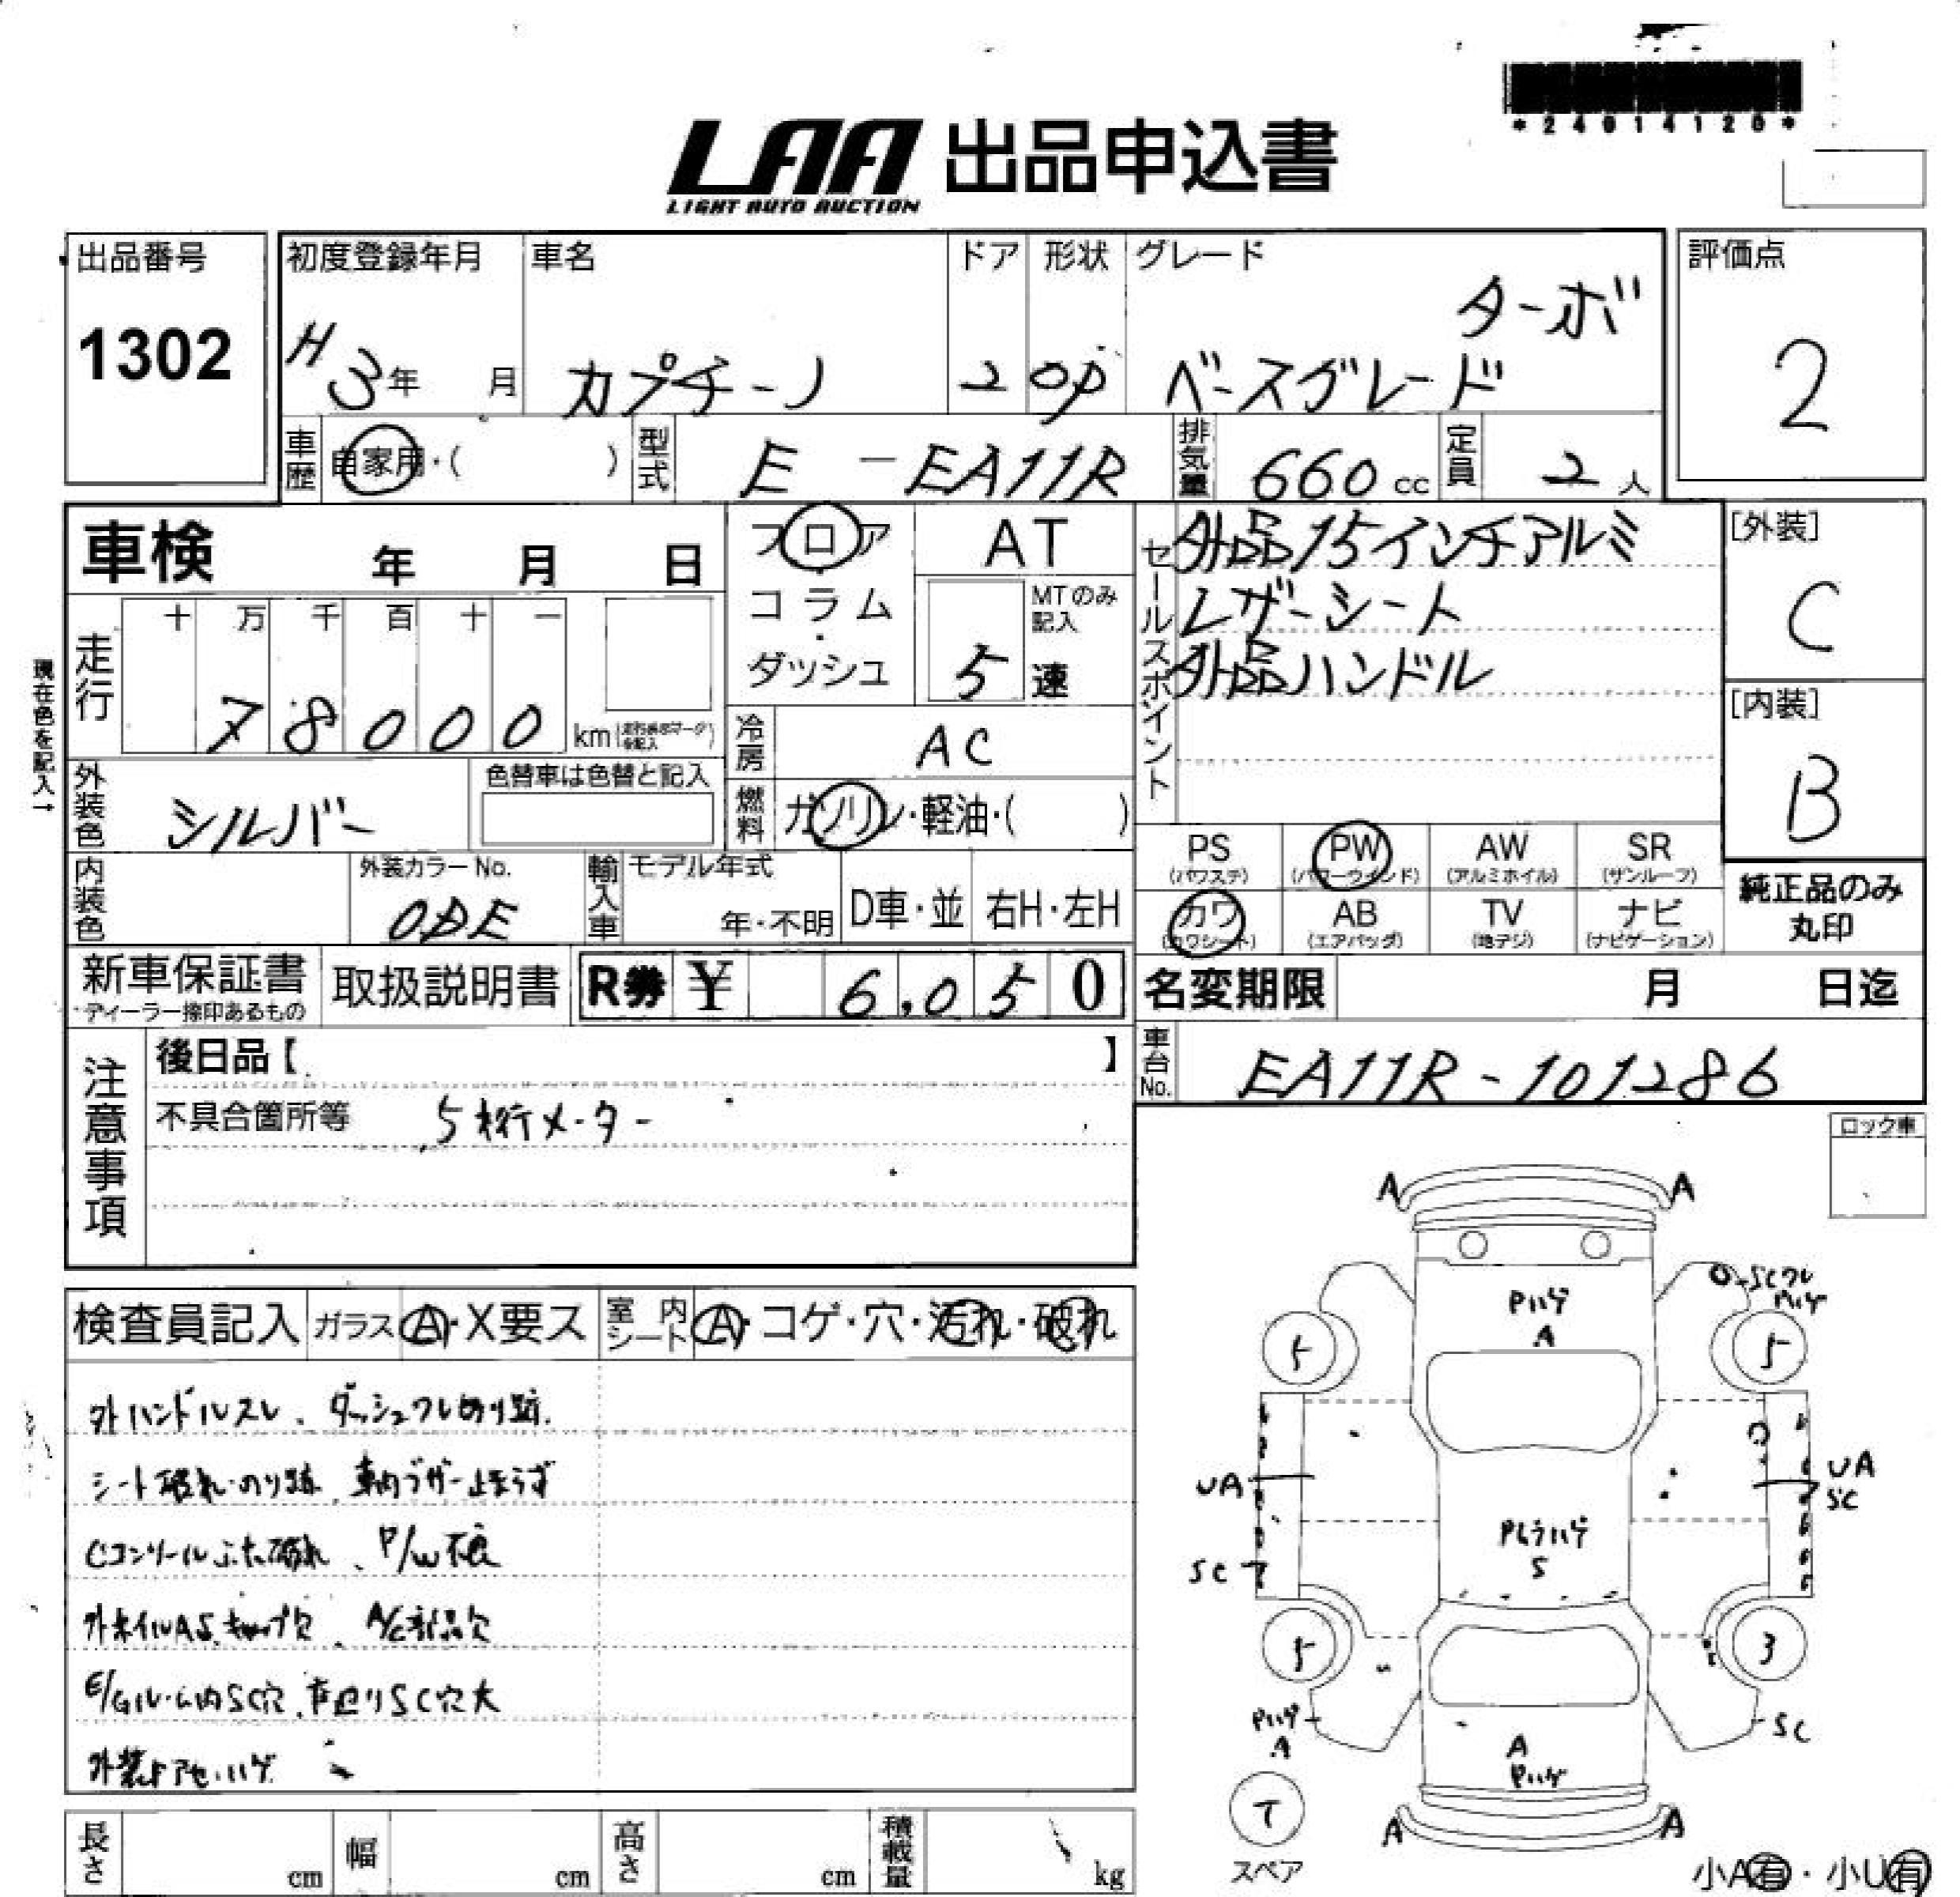 *24014120*
LAA 出品申込書
LIGHT AUTO AUCTION
出品番号 初度登録年月 車名 ドア 形状 グレード 評価点
1302 H3年 月 カプチーノ 2 OP ターボ
ベースグレード 2
車歴 自家用・( ) 型式 E-EA11R 排気量 660cc 定員 2人
車検 年 月 日 フロア AT
コラム
ダッシュ
MTのみ記入
5速
セールスポイント
外品15インチアルミ
レザーシート
外品ハンドル
[外装]
C
[内装]
B
現在色を記入→
走行 十 万 千 百 十 一
78000 km
冷房 AC
外装色 シルバー 色替車は色替と記入 燃料 ガソリン・軽油・( )
PS PW AW SR
(パワステ) (パワーウインド) (アルミホイル) (サンルーフ)
カワ AB TV ナビ
(カワシート) (エアバッグ) (地デジ) (ナビゲーション)
純正品のみ
丸印
内装色 外装カラーNo. 輸入車 モデル年式
年・不明 D車・並 右H・左H
新車保証書 取扱説明書 R券 ¥ 6,050 名変期限 月 日迄
ディーラー捺印あるもの
車台No. EA11R-101286
注意事項
後日品【 】
不具合箇所等 5桁メーター
ロック車
検査員記入 ガラス A・X要ス 室内シート A・コゲ・穴・汚れ・破れ
外ハンドルスレ、ダッシュワレ切り跡
シート破れ・のり跡、車内ブザー止まらず
Cコンソールふた破れ、P/W不良
外ホイルAS、キャップ欠、A/C部品欠
E/Gルーム内SC穴、下廻りSC穴大
A A
Pハゲ
A
SCワレ
Pハゲ
5 5
UA
UA
SC
SC
S
5 3
Pハゲ
A
SC
A
Pハゲ
T
スペア
A A
小A有・小U有
長さ cm 幅 cm 高さ cm 積載量 kg